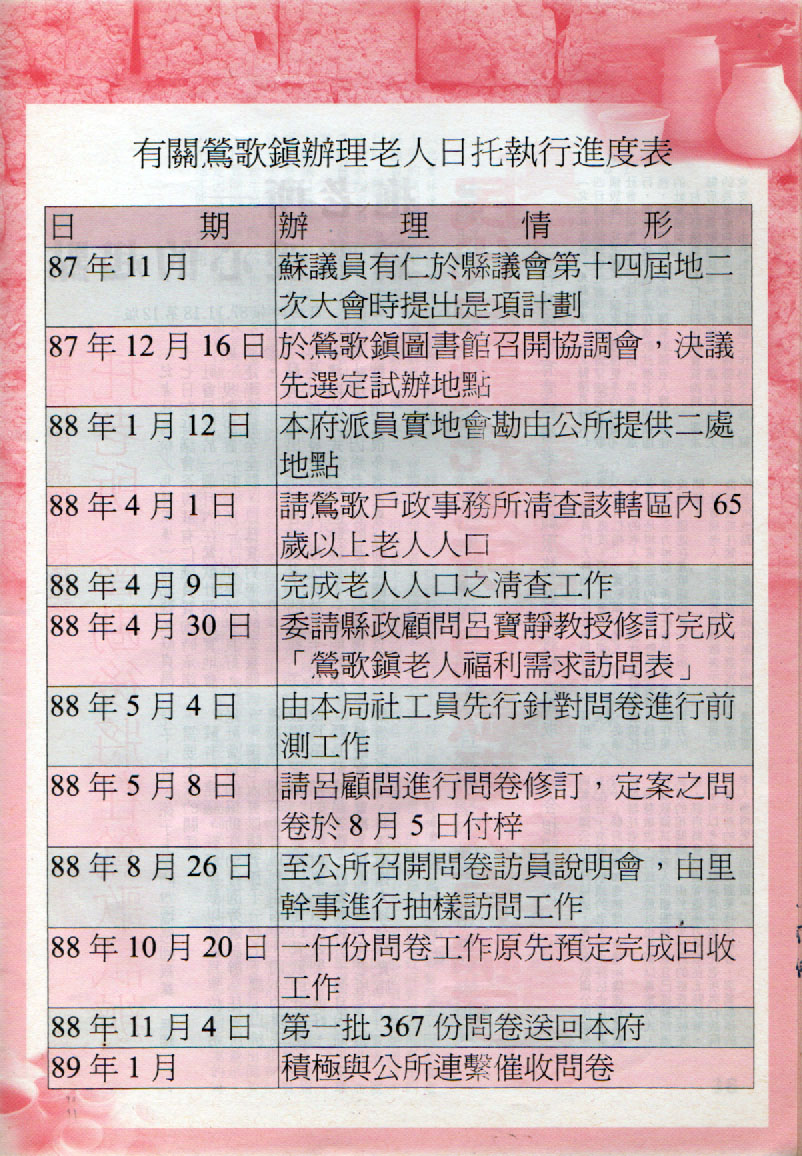 有關鶯歌鎮辦理老人日托執行進度表
日期 辦理情形
87年11月 蘇議員有仁於縣議會第十四屆地二
次大會時提出是項計劃
87年12月16日 於鶯歌鎮圖書館召開協調會，決議
先選定試辦地點
88年1月12日 本府派員實地會勘由公所提供二處
地點
88年4月1日 請鶯歌戶政事務所清查該轄區內65
歲以上老人人口
88年4月9日 完成老人人口之清查工作
88年4月30日 委請縣政顧問呂寶靜教授修訂完成
「鶯歌鎮老人福利需求訪問表」
88年5月4日 由本局社工員先行針對問卷進行前
測工作
88年5月8日 請呂顧問進行問卷修訂，定案之問
卷於8月5日付梓
88年8月26日 至公所召開問卷訪員說明會，由里
幹事進行抽樣訪問工作
88年10月20日 一仟份問卷工作原先預定完成回收
工作
88年11月4日 第一批367份問卷送回本府
89年1月 積極與公所連繫催收問卷